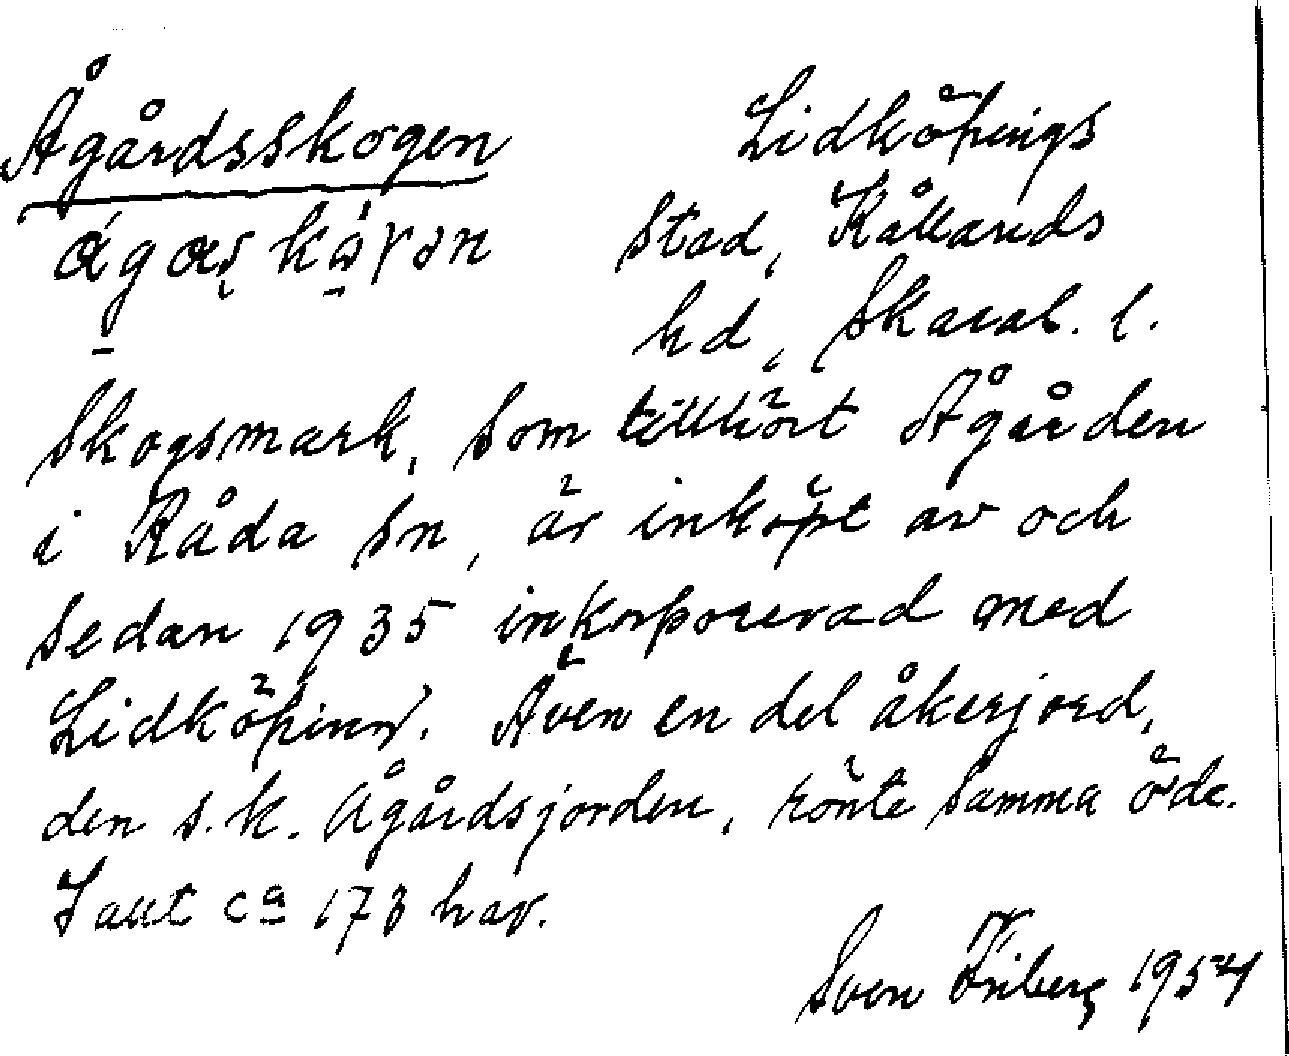 Ågårdsskogen
Lidköpings
stad, Kållands
hd, Skarab. l.
Skogsmark, som tillhört Ågården
i Råda sn, är inköpt av och
sedan 1935 inkorporerad med
Lidköping. Även en del åkerjord,
den s.k. Ågårdsjorden, rönte samma öde.
I allt ca 173 har.
Sven Friberg 1954